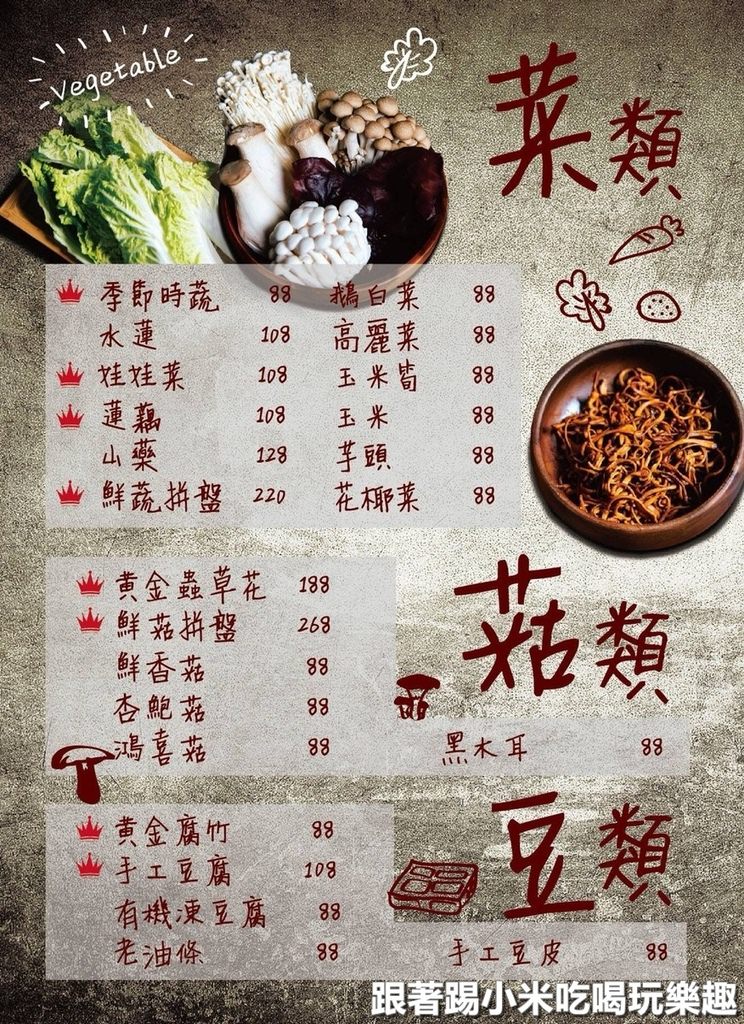 Vegetable
菜類
季節時蔬 88 鵝白菜 88
水蓮 108 高麗菜 88
娃娃菜 108 玉米筍 88
蓮藕 108 玉米 88
山藥 128 芋頭 88
鮮蔬拼盤 220 花椰菜 88
菇類
黃金蟲草花 188
鮮菇拼盤 268
鮮香菇 88
杏鮑菇 88
鴻喜菇 88 黑木耳 88
豆類
黃金腐竹 88
手工豆腐 108
有機凍豆腐 88
老油條 88 手工豆皮 88
跟著踢小米吃喝玩樂趣